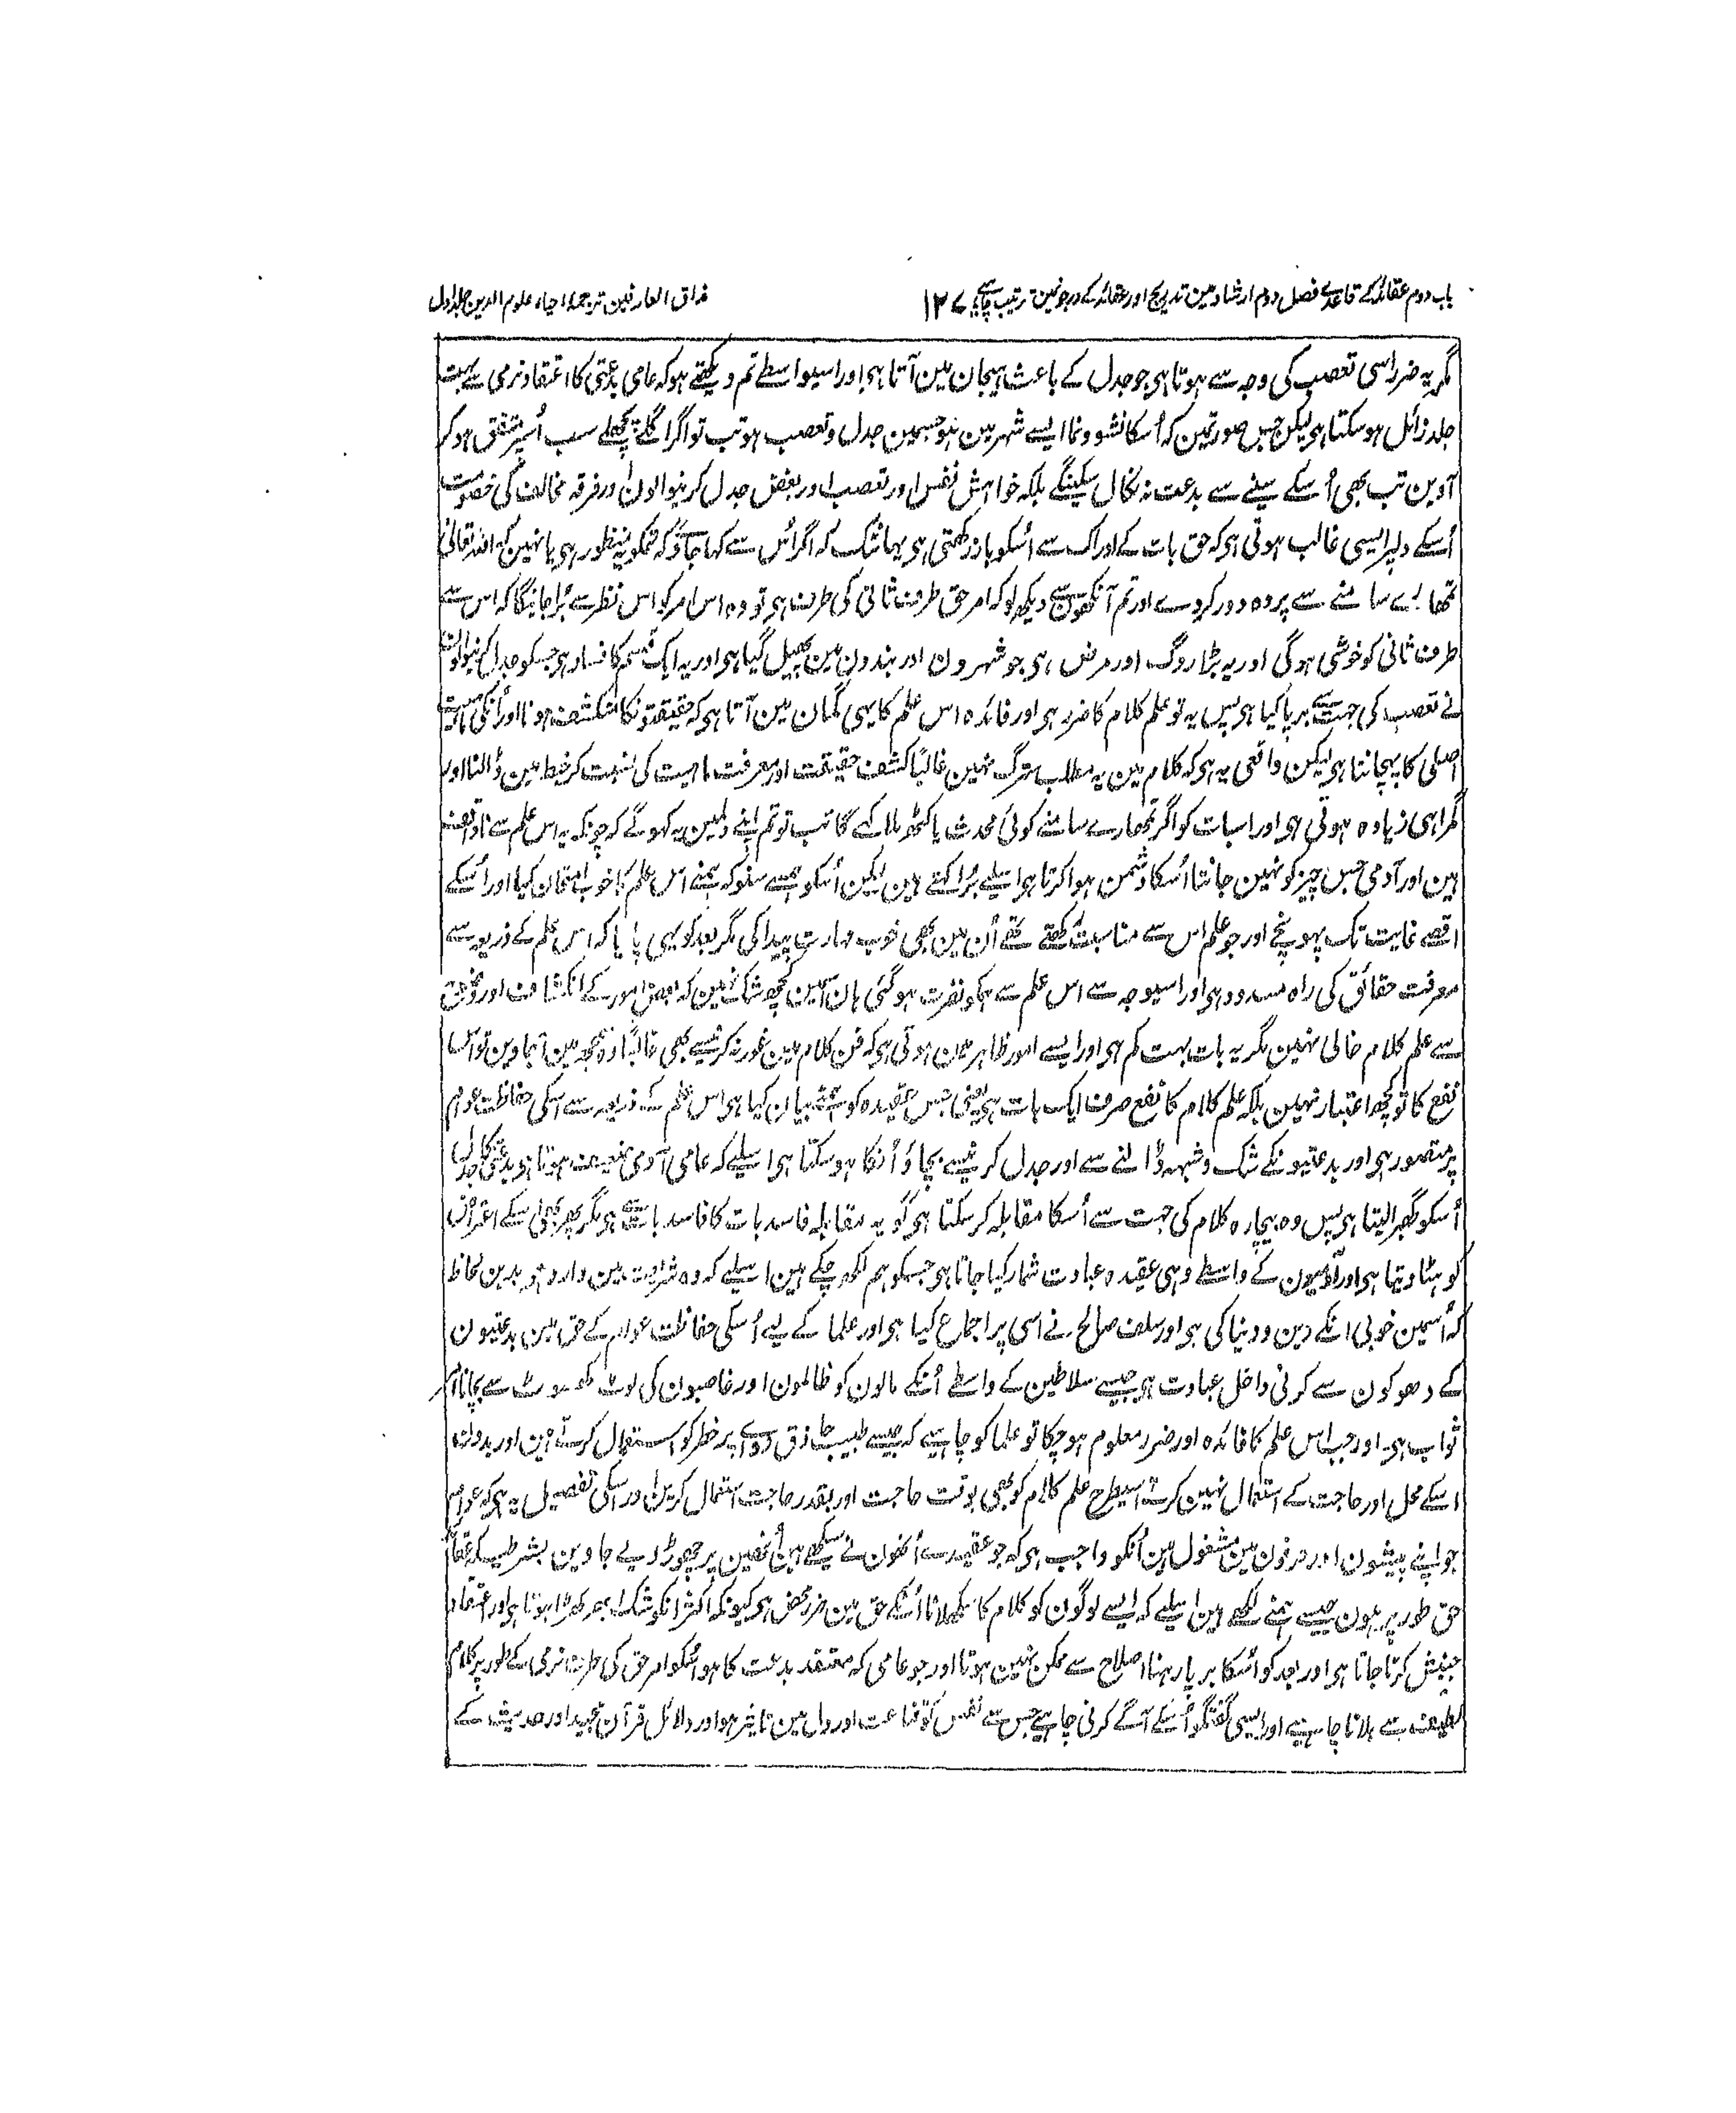 باب دوم عقائد کے قاعدے فصل دوم ارشاد مین تدریج اور عقائد کے درجونمین ترتیب چاہیے ۱۲۷ مذاق العارفین ترجمۂ احیاء علوم الدین جلد اول
مگر یہ ضرر اسی تعصب کی وجہ سے ہوتا ہی جو جدل کے باعث ہیجان مین آتا ہی اور اسیواسطے تم دیکھتے ہو کہ عامی بدعتی کا اعتقاد نرمی سے بہت
جلد زائل ہو سکتا ہی لیکن جس صورتمین کہ اُسکا نشوونما ایسے شہر مین ہو جسمین جدل و تعصب ہو تب تو اگر اگلے پچھلے سب اُسپر متفق ہو کر
آوین تب بھی اُسکے سینے سے بدعت نہ نکال سکینگے بلکہ خواہش نفس اور تعصب اور بغض جدل کرنیوالون اور فرقہ مخالف کی خصومت
اُسکے دلپر ایسی غالب ہوتی ہی کہ حق بات کے ادراک سے اُسکو باز رکھتی ہی یہانتک کہ اگر اُس سے کہا جاوے کہ تمکو یہ منظور ہی یا نہین کہ اللہ تعالی
تمھارے سامنے سے پردہ دور کردے اور تم آنکھون سے دیکھ لو کہ امر حق طرف ثانی کی طرف ہی تو وہ اس امر کو اس نظر سے بُرا جانیگا کہ اس سے
طرف ثانی کو خوشی ہو گی اور یہ بڑا روگ اور مرض ہی جو شہرون اور بندون مین پھیل گیا ہی اور یہ ایک قسم کا فساد ہی جسکو جدل کرنیوالون
نے تعصب کی جہت سے برپا کیا ہی پس یہ تو علم کلام کا ضرر ہی اور فائدہ اس علم کا یہی گمان مین آتا ہی کہ حقیقتونکا منکشف ہونا اور اُنکی ماہیت
اصلی کا پہچاننا ہی لیکن واقعی یہ ہی کہ کلام مین یہ مطلب ہرگز نہین غالبًا کشف حقیقت اور معرفت ماہیت کی نسبت کر خبط مین ڈالنا اور
گمراہی زیادہ ہوتی ہی اور اسبات کو اگر تمھارے سامنے کوئی محدث یا کٹھ ملا کہے گا تب تو تم اپنے دلمین یہ کہوگے کہ چونکہ یہ اس علم سے ناواقف
ہین اور آدمی جس چیز کو نہین جانتا اُسکا دشمن ہوا کرتا ہی اسلیے بُرا کہتے ہین لیکن اُسکو ہمسے سنو کہ ہمنے اس علم کا خوب امتحان کیا اور اُسکے
اقصے غایت تک پہونچے اور جو علم اس سے مناسبت رکھتے تھے اُن مین بھی خوب مہارت پیدا کی مگر بعد کو یہی پایا کہ اس علم کے ذریعہ سے
معرفت حقائق کی راہ مسدود ہی اور اسیوجہ سے اس علم سے ہمکو نفرت ہو گئی ہان اسمین کچھ شک نہین کہ بعض امور کے انکشاف اور توضیح
سے علم کلام خالی نہین مگر یہ بات بہت کم ہی اور ایسے امور ظاہر مین ہوتی ہی کہ فن کلام مین غور نہ کرنیسے بھی غالبًا وہ سمجھ مین آجاوین تو اس
نفع کا تو کچھ اعتبار نہین بلکہ علم کلام کا نفع صرف ایک بات ہی یعنی جس عقیدہ کو ہمنے بیان کیا ہی اس علم کے ذریعہ سے اسکی حفاظت عوام
پر متصور ہی اور بدعتیونکے شک و شبہہ ڈالنے سے اور جدل کرنیسے بچاؤ اُنکا ہو سکتا ہی اسلیے کہ عامی آدمی ضعیف ہوتا ہی بدعتی کا جدل
اُسکو گھبرا لیتا ہی پس وہ بیچارہ کلام کی جہت سے اُسکا مقابلہ کر سکتا ہی گو یہ مقابلہ فاسد بات کا فاسد بات سے ہی مگر پھر بھی اسکے اعتراض
کو ہٹا دیتا ہی اور آدمیون کے واسطے وہی عقیدہ عبادت شمار کیا جاتا ہی جسکو ہم لکھ چکے ہین اسلیے کہ وہ شریعت مین وارد ہی بدین لحاظ
کہ اُسمین خوبی انکے دین و دنیا کی ہی اور سلف صالح نے اسی پر اجماع کیا ہی اور علما کے لیے اُسکی حفاظت عوام کے حق مین بدعتیون
کے دھوکون سے کرنی داخل عبادت ہی جیسے سلاطین کے واسطے اُنکے مالون کو ظالمون اور غاصبون کی لوٹ کھسوٹ سے بچانا
ثواب ہی۔ اور جب اس علم کا فائدہ اور ضرر معلوم ہو چکا تو علما کو چاہیے کہ جیسے طبیب حاذق دواے پر خطر کو استعمال کرتے ہین اور بدون
اسکے محل اور حاجت کے استعمال نہین کرتے اسیطرح علم کلام کو بھی بوقت حاجت اور بقدر حاجت استعمال کرین اور اسکی تفصیل یہ ہی کہ عوام
جو اپنے پیشون اور حرفون مین مشغول ہین اُنکو واجب ہی کہ جو عقیدے اُنھون نے سیکھے ہین اُنھین پر چھوڑ دیے جاوین بشرطیکہ عقائد
حق طور پر ہون جیسے ہمنے لکھے ہین اسلیے کہ ایسے لوگون کو کلام کا سکھلانا اُنکے حق مین ضرر محض ہی کیونکہ اکثر انکو شک ابھر کھڑا ہوتا ہی اور اعتقاد
جنبش کرتا جاتا ہی اور بعد کو اُسکا برپا رہنا اصلاح سے ممکن نہین ہوتا اور جو عامی کہ معتقد بدعت کا ہو اُسکو امر حق کی طرف نرمی کے طور پر کلام
لطیف سے بلانا چاہیے اور ایسی گفتگو اُسکے آگے کرنی چاہیے جس سے نفس کو قناعت اور دل مین تاثیر ہو اور دلائل قرآن مجید اور حدیث کے